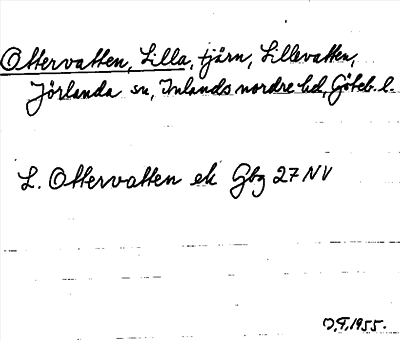 Ottervatten, Lilla, tjärn, Lillevatten,
Jörlanda sn, Inlands nordre hd, Göteb. l.
L. Ottervatten ek Gbg 27 NV
1955.